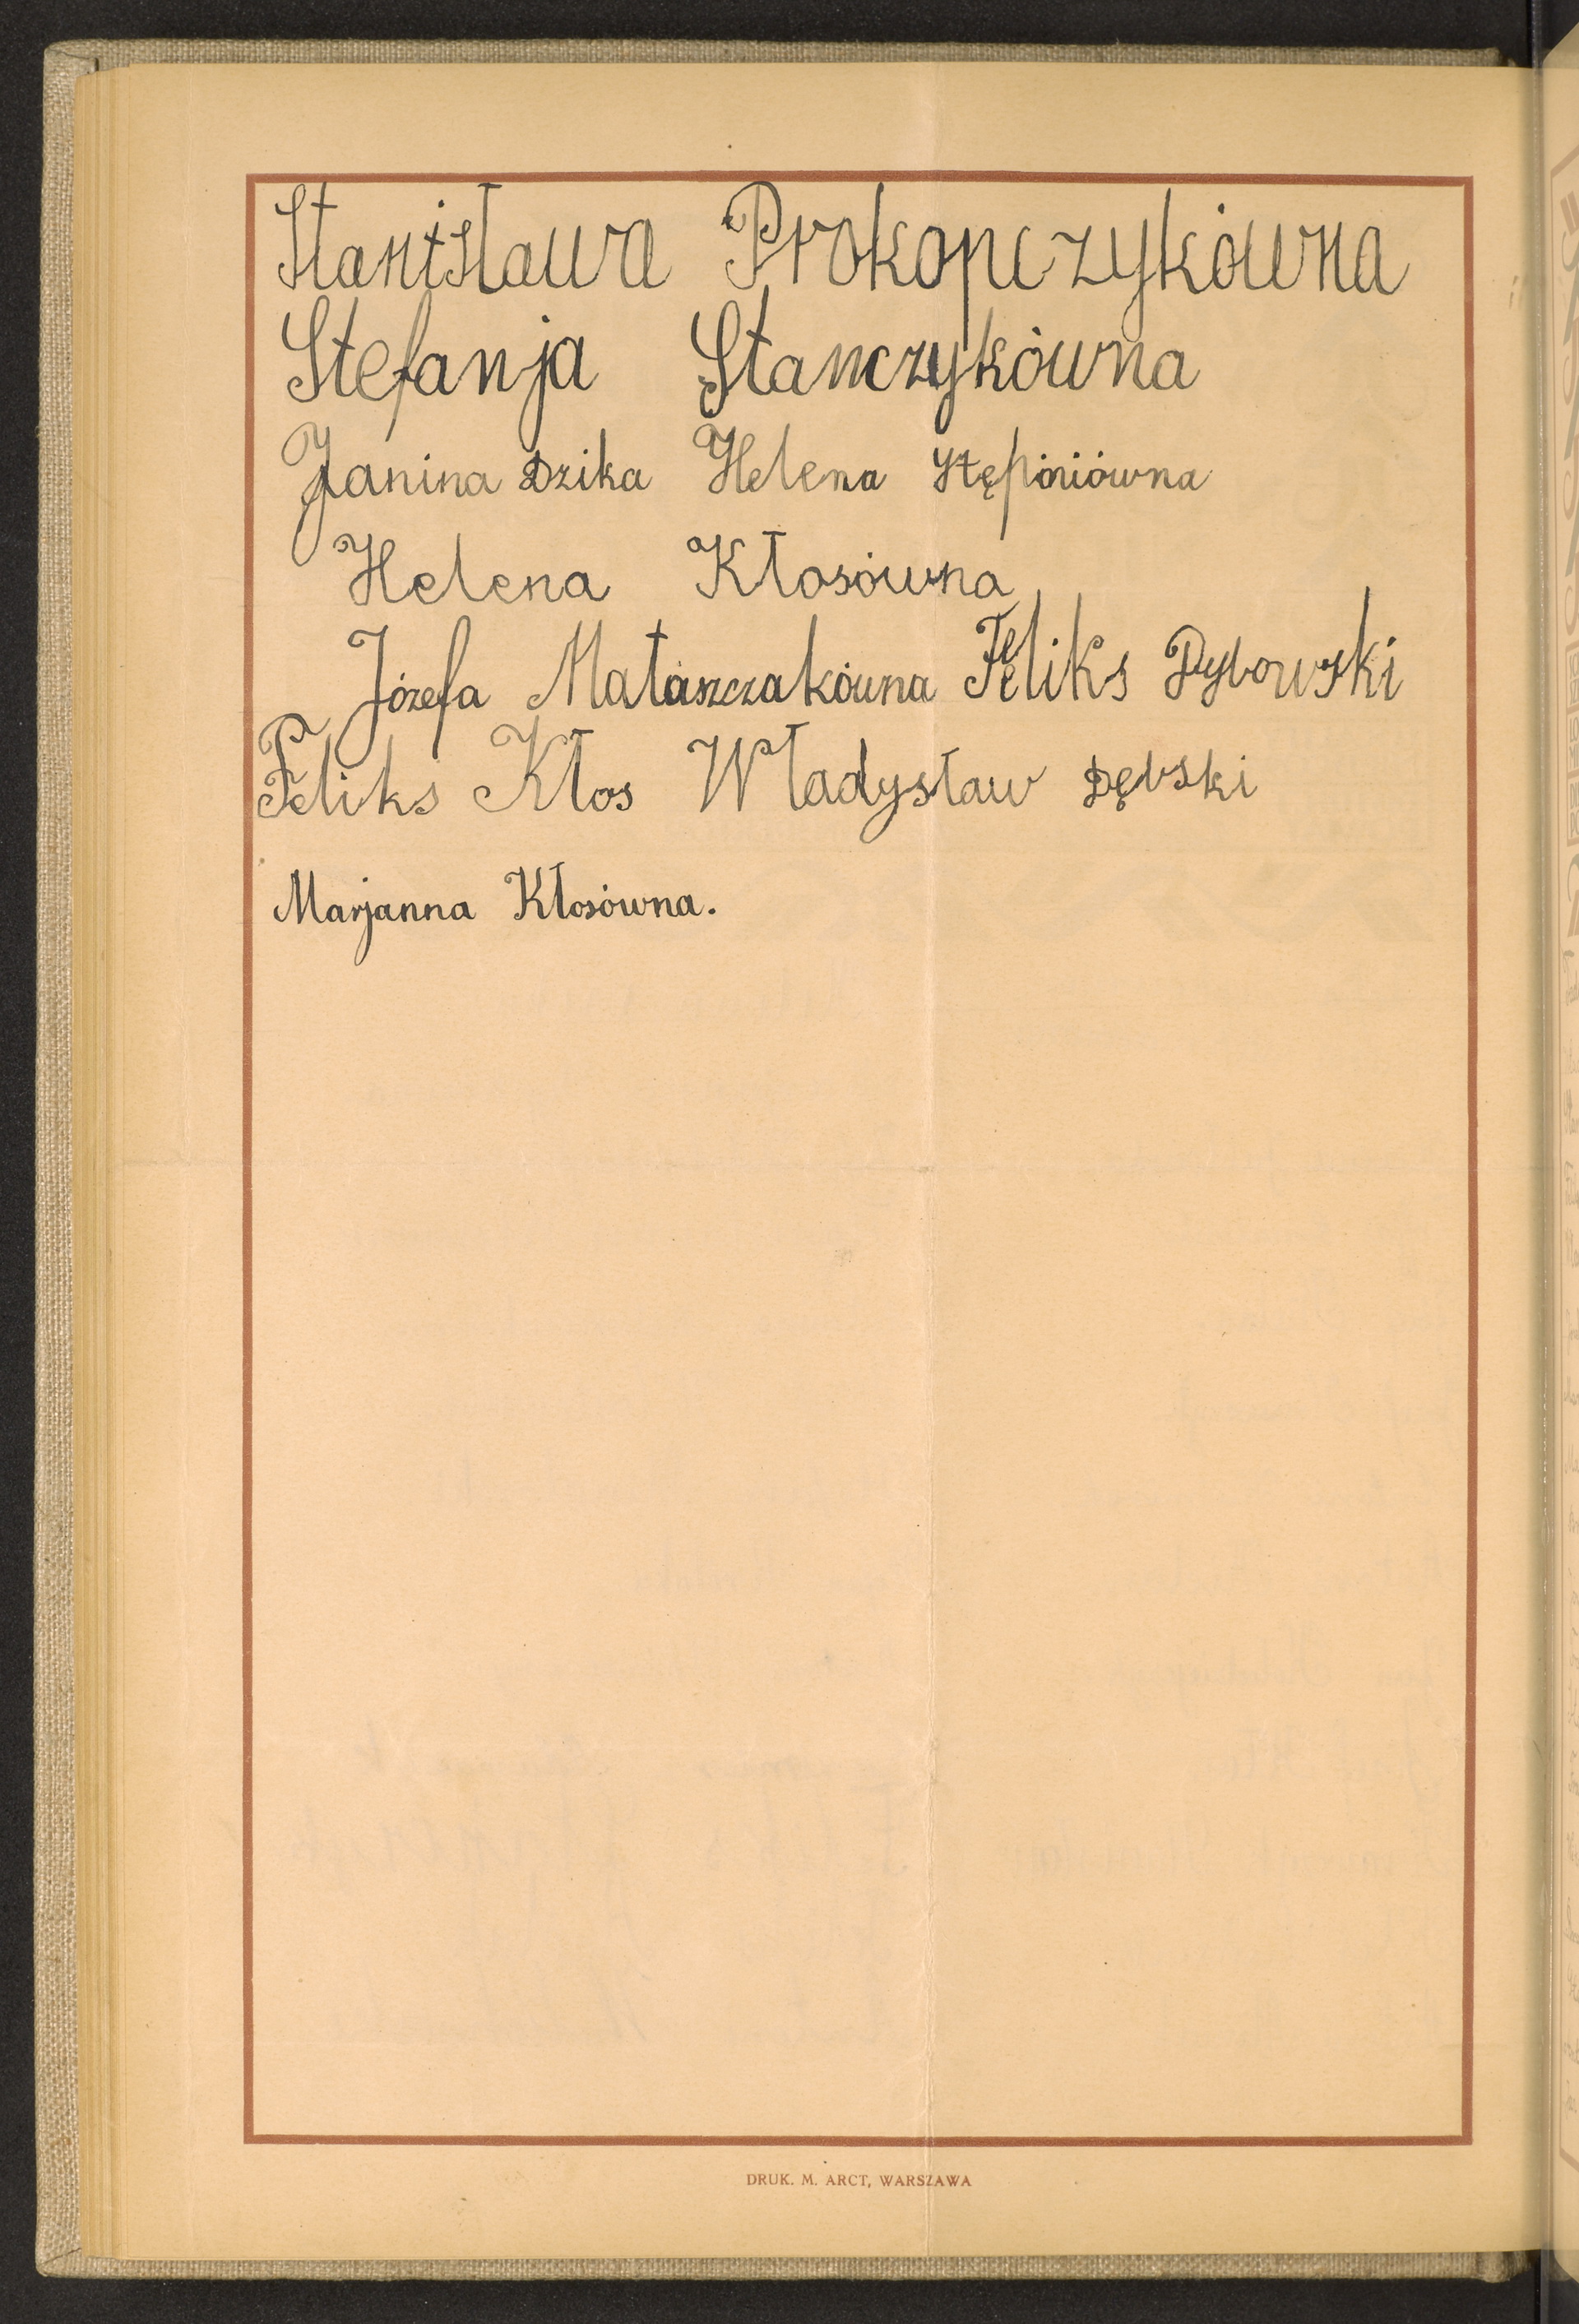 Stanisława Prokopczykówna
Stefanja Stanczykówna
Janina Dzika Helena Stępiniówna
Helena Kłosówna
Józefa Mataszczakówna Feliks Dybowski
Feliks Kłos Władysław Dębski
Marjanna Kłosówna.
DRUK. M. ARCT, WARSZAWA